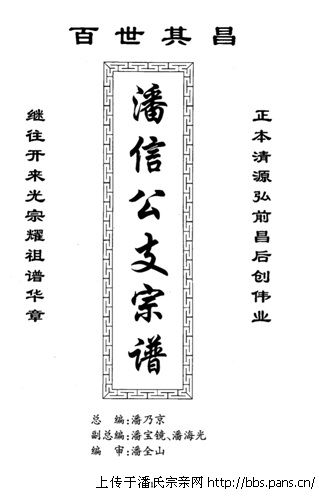 百世其昌
正本清源弘前昌后创伟业
潘信公支宗谱
继往开来光宗耀祖谱华章
总　编:潘乃京
副总编:潘宝镜、潘海光
编　审:潘全山
上传于潘氏宗亲网http://bbs.pans.cn/